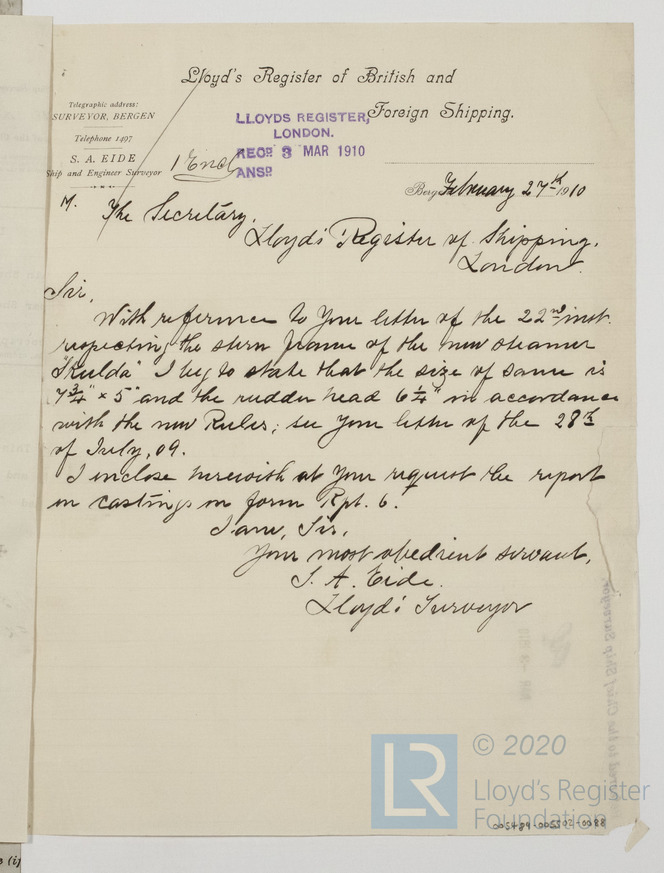 Lloyd's Register of British and
Foreign Shipping.
Telegraphic address:
SURVEYOR, BERGEN
Telephone 1497
S. A. EIDE
Ship and Engineer Surveyor
LLOYDS REGISTER,
LONDON.
RECD 3 MAR 1910
ANSD
1 Encl
Berg February 27th 1910
The Secretary,
Lloyd's Register of Shipping,
London.
Sir,
With reference to Your letter of the 22nd inst.
respecting the stern frame of the new steamer
"Kulda" I beg to state that the size of same is
7 3/4" × 5" and the rudder head 6 1/4" in accordance
with the new Rules; see Your letter of the 28th
of July, 09.
I inclose herewith at Your request the report
on castings on form Rpt. 6.
I am, Sir,
Your most obedient servant,
S. A. Eide.
Lloyd's Surveyor
LR
© 2020
Lloyd's Register
Foundation
005489-005502-0088